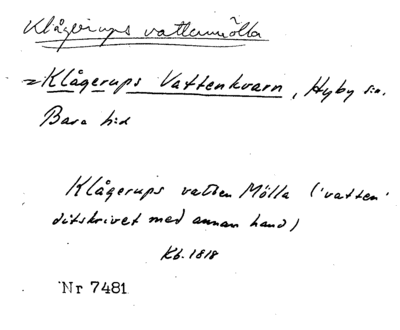 Klågerups vattenmölla
= Klågerups Vattenkvarn, Hyby sn.
Bara hd
Klågerups vatten Mölla ('vatten'
ditskrivet med annan hand)
Kb. 1818
Nr 7481